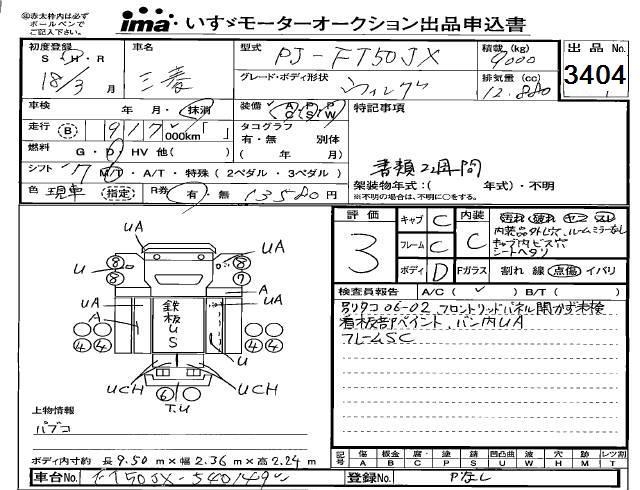 ㊟赤太枠内は必ず
ボールペンで
ご記入下さい。
ima いすゞモーターオークション出品申込書
初度登録
S・H・R
18/3 月
車名
三菱
型式
PJ-FT50JX
グレード・ボディ形状
ウィング
積載 (kg)
9000
排気量 (cc)
12.880
出品 No.
3404
車検
年 月・抹消
装備
A C
P S
P W
特記事項
書類2週間
走行 (B) 917 000km「 」
タコグラフ
有・無 別体
( 年 月)
燃料 G・D・HV 他( )
シフト 7 M/T・A/T・特殊 (2ペダル・3ペダル)
架装物年式:( 年式)・不明
※不明の場合は、不明に○をする。
色 現車 (指定)
R券 有・無 13580 円
評価
3
キャブ C
フレーム C
ボディ D
内装
C
汚れ 破れ ヤニ スレ
内装品外し穴、ルームミラーなし
キャブ内ビス穴
シートヘタリ
Fガラス 割れ 線 点傷 イバリ
検査員報告 A/C( ✓ ) B/T( )
号リタコ06-02、フロントリッドパネル開かず未検
看板部ペイント、バン内UA
フレームSC
UA
UA
U
8
8
8
7
A
UA
UA
A
鉄板US
4
4
4
4
U
UCH
UCH
6
T.U
上物情報
パブコ
ボディ内寸約 長 9.50 m×幅 2.36 m×高 2.24 m
記号
傷 A
板金 B
腐・ C
塗 P
錆 S
凹凸曲 U
波 W
穴 H
跡 M
レツ割 T
車台No. FT50JX-540149
登録No. Pなし